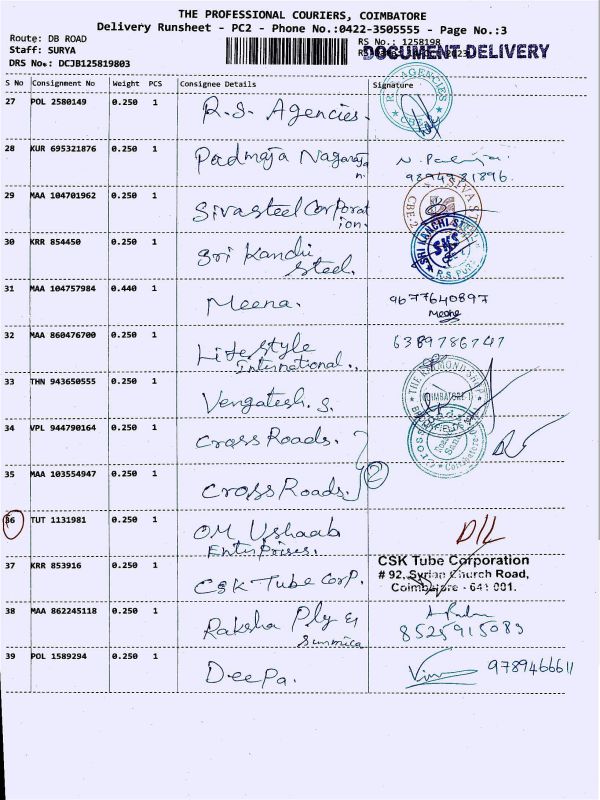 THE PROFESSIONAL COURIERS, COIMBATORE
Delivery Runsheet - PC2 - Phone No.:0422-3505555 - Page No.:3
Route: DB ROAD
RS No.: 1258198
Staff: SURYA
DOCUMENT DELIVERY
DRS No.: DCJB125819803
S No Consignment No Weight PCS Consignee Details Signature
27 POL 2580149 0.250 1 R.S. Agencies.
28 KUR 695321876 0.250 1 Padmaja Nagaraja
n.
29 MAA 104701962 0.250 1 Sivasteel Corporat
ion.
30 KRR 854450 0.250 1 Sri Kanchi
Steel.
SRI KANCHI STEEL
SKS
R.S. PURAM
31 MAA 104757984 0.440 1 Meena. 9677640897
32 MAA 860476700 0.250 1 Lifestyle
International.
33 THN 943650555 0.250 1 Vengatesh. S.
THE RAYMOND SHOP
COIMBATORE
34 VPL 944790164 0.250 1 Cross Roads.
35 MAA 103554947 0.250 1 Cross Roads. 2
36 TUT 1131981 0.250 1 OM Ushaab
Enterprises.
D/L
37 KRR 853916 0.250 1 CSK Tube Corp.
CSK Tube Corporation
# 92, Syrian Church Road,
Coimbatore - 641 001.
38 MAA 862245118 0.250 1 Raksha Ply &
Sunmica
8525915089
39 POL 1589294 0.250 1 Deepa. 9789466611